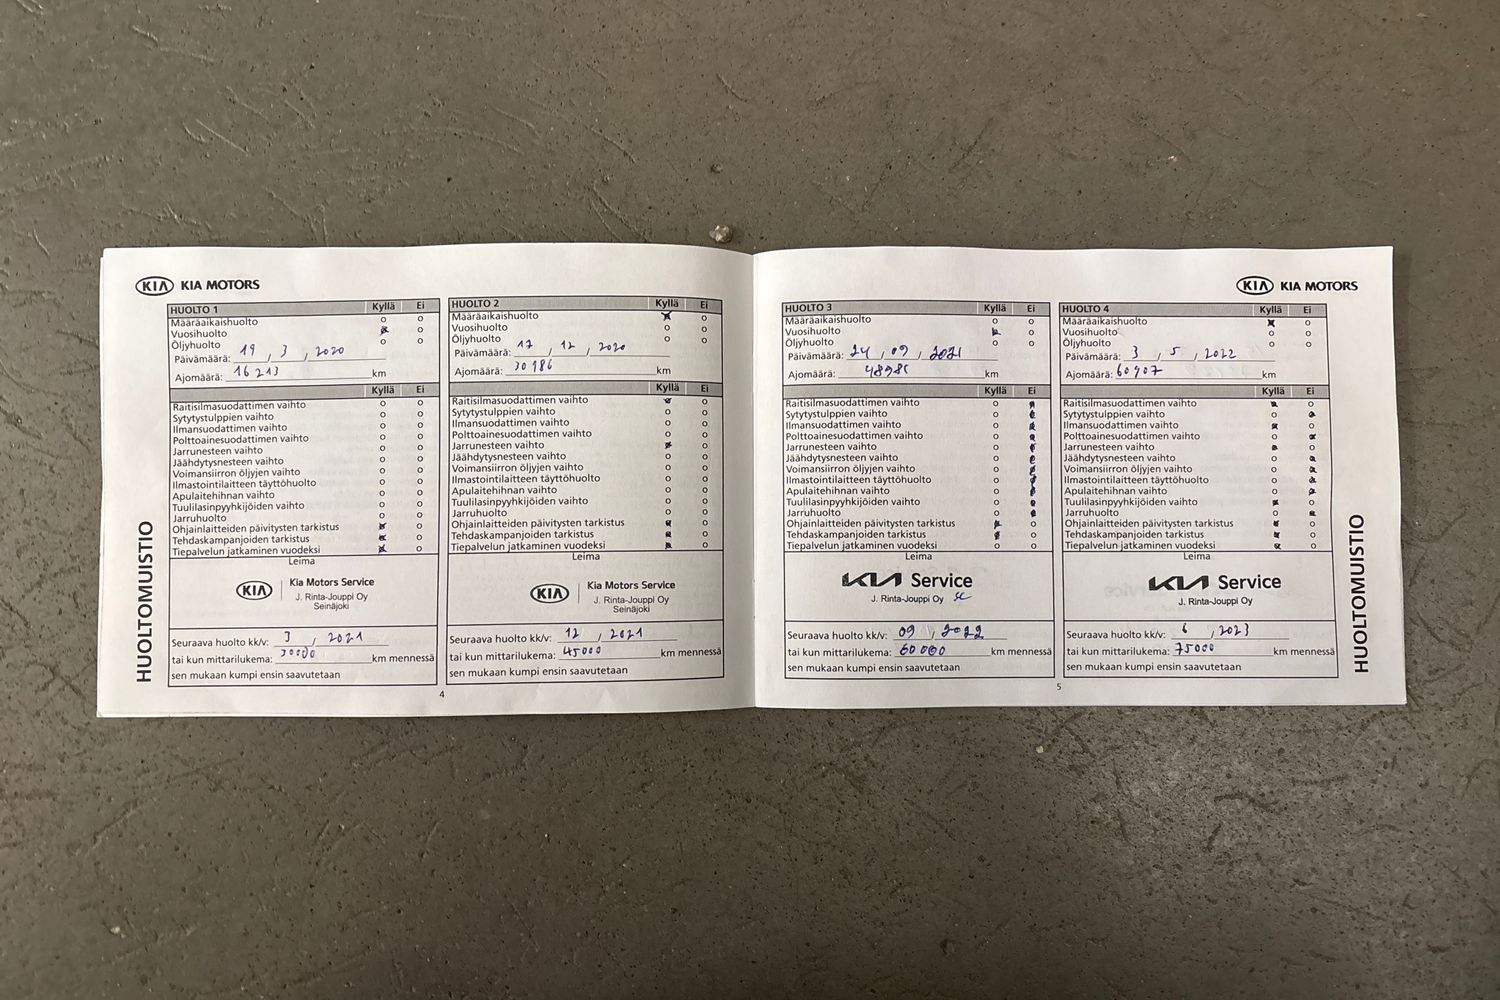 KIA KIA MOTORS
HUOLTOMUISTIO
HUOLTO 1 Kyllä Ei
Määräaikaishuolto
Vuosihuolto
Öljyhuolto
Päivämäärä: 19 , 3 , 2020
Ajomäärä: 16 213 km
Kyllä Ei
Raitisilmasuodattimen vaihto
Sytytystulppien vaihto
Ilmansuodattimen vaihto
Polttoainesuodattimen vaihto
Jarrunesteen vaihto
Jäähdytysnesteen vaihto
Voimansiirron öljyjen vaihto
Ilmastointilaitteen täyttöhuolto
Apulaitehihnan vaihto
Tuulilasinpyyhkijöiden vaihto
Jarruhuolto
Ohjainlaitteiden päivitysten tarkistus
Tehdaskampanjoiden tarkistus
Tiepalvelun jatkaminen vuodeksi
Leima
KIA Kia Motors Service
J. Rinta-Jouppi Oy
Seinäjoki
Seuraava huolto kk/v: 3 , 2021
tai kun mittarilukema: 30000 km mennessä
sen mukaan kumpi ensin saavutetaan
HUOLTO 2 Kyllä Ei
Määräaikaishuolto
Vuosihuolto
Öljyhuolto
Päivämäärä: 17 , 12 , 2020
Ajomäärä: 30 986 km
Kyllä Ei
Raitisilmasuodattimen vaihto
Sytytystulppien vaihto
Ilmansuodattimen vaihto
Polttoainesuodattimen vaihto
Jarrunesteen vaihto
Jäähdytysnesteen vaihto
Voimansiirron öljyjen vaihto
Ilmastointilaitteen täyttöhuolto
Apulaitehihnan vaihto
Tuulilasinpyyhkijöiden vaihto
Jarruhuolto
Ohjainlaitteiden päivitysten tarkistus
Tehdaskampanjoiden tarkistus
Tiepalvelun jatkaminen vuodeksi
Leima
KIA Kia Motors Service
J. Rinta-Jouppi Oy
Seinäjoki
Seuraava huolto kk/v: 12 , 2021
tai kun mittarilukema: 45000 km mennessä
sen mukaan kumpi ensin saavutetaan
4
KIA KIA MOTORS
HUOLTO 3 Kyllä Ei
Määräaikaishuolto
Vuosihuolto
Öljyhuolto
Päivämäärä: 24 , 09 , 2021
Ajomäärä: km
Kyllä Ei
Raitisilmasuodattimen vaihto
Sytytystulppien vaihto
Ilmansuodattimen vaihto
Polttoainesuodattimen vaihto
Jarrunesteen vaihto
Jäähdytysnesteen vaihto
Voimansiirron öljyjen vaihto
Ilmastointilaitteen täyttöhuolto
Apulaitehihnan vaihto
Tuulilasinpyyhkijöiden vaihto
Jarruhuolto
Ohjainlaitteiden päivitysten tarkistus
Tehdaskampanjoiden tarkistus
Tiepalvelun jatkaminen vuodeksi
Leima
KIA Service
J. Rinta-Jouppi Oy
Seuraava huolto kk/v: 09 , 2022
tai kun mittarilukema: 60000 km mennessä
sen mukaan kumpi ensin saavutetaan
HUOLTO 4 Kyllä Ei
Määräaikaishuolto
Vuosihuolto
Öljyhuolto
Päivämäärä: 3 , 5 , 2022
Ajomäärä: 60907 km
Kyllä Ei
Raitisilmasuodattimen vaihto
Sytytystulppien vaihto
Ilmansuodattimen vaihto
Polttoainesuodattimen vaihto
Jarrunesteen vaihto
Jäähdytysnesteen vaihto
Voimansiirron öljyjen vaihto
Ilmastointilaitteen täyttöhuolto
Apulaitehihnan vaihto
Tuulilasinpyyhkijöiden vaihto
Jarruhuolto
Ohjainlaitteiden päivitysten tarkistus
Tehdaskampanjoiden tarkistus
Tiepalvelun jatkaminen vuodeksi
Leima
KIA Service
J. Rinta-Jouppi Oy
Seuraava huolto kk/v: 6 , 2023
tai kun mittarilukema: 75000 km mennessä
sen mukaan kumpi ensin saavutetaan
HUOLTOMUISTIO
5